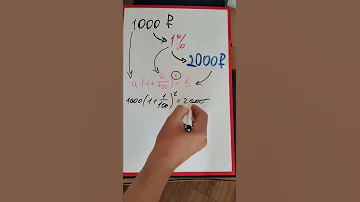 1000 ₽
1%
2000₽
a(1+1/100)^t = b
1000(1+1/100)^t = 2000